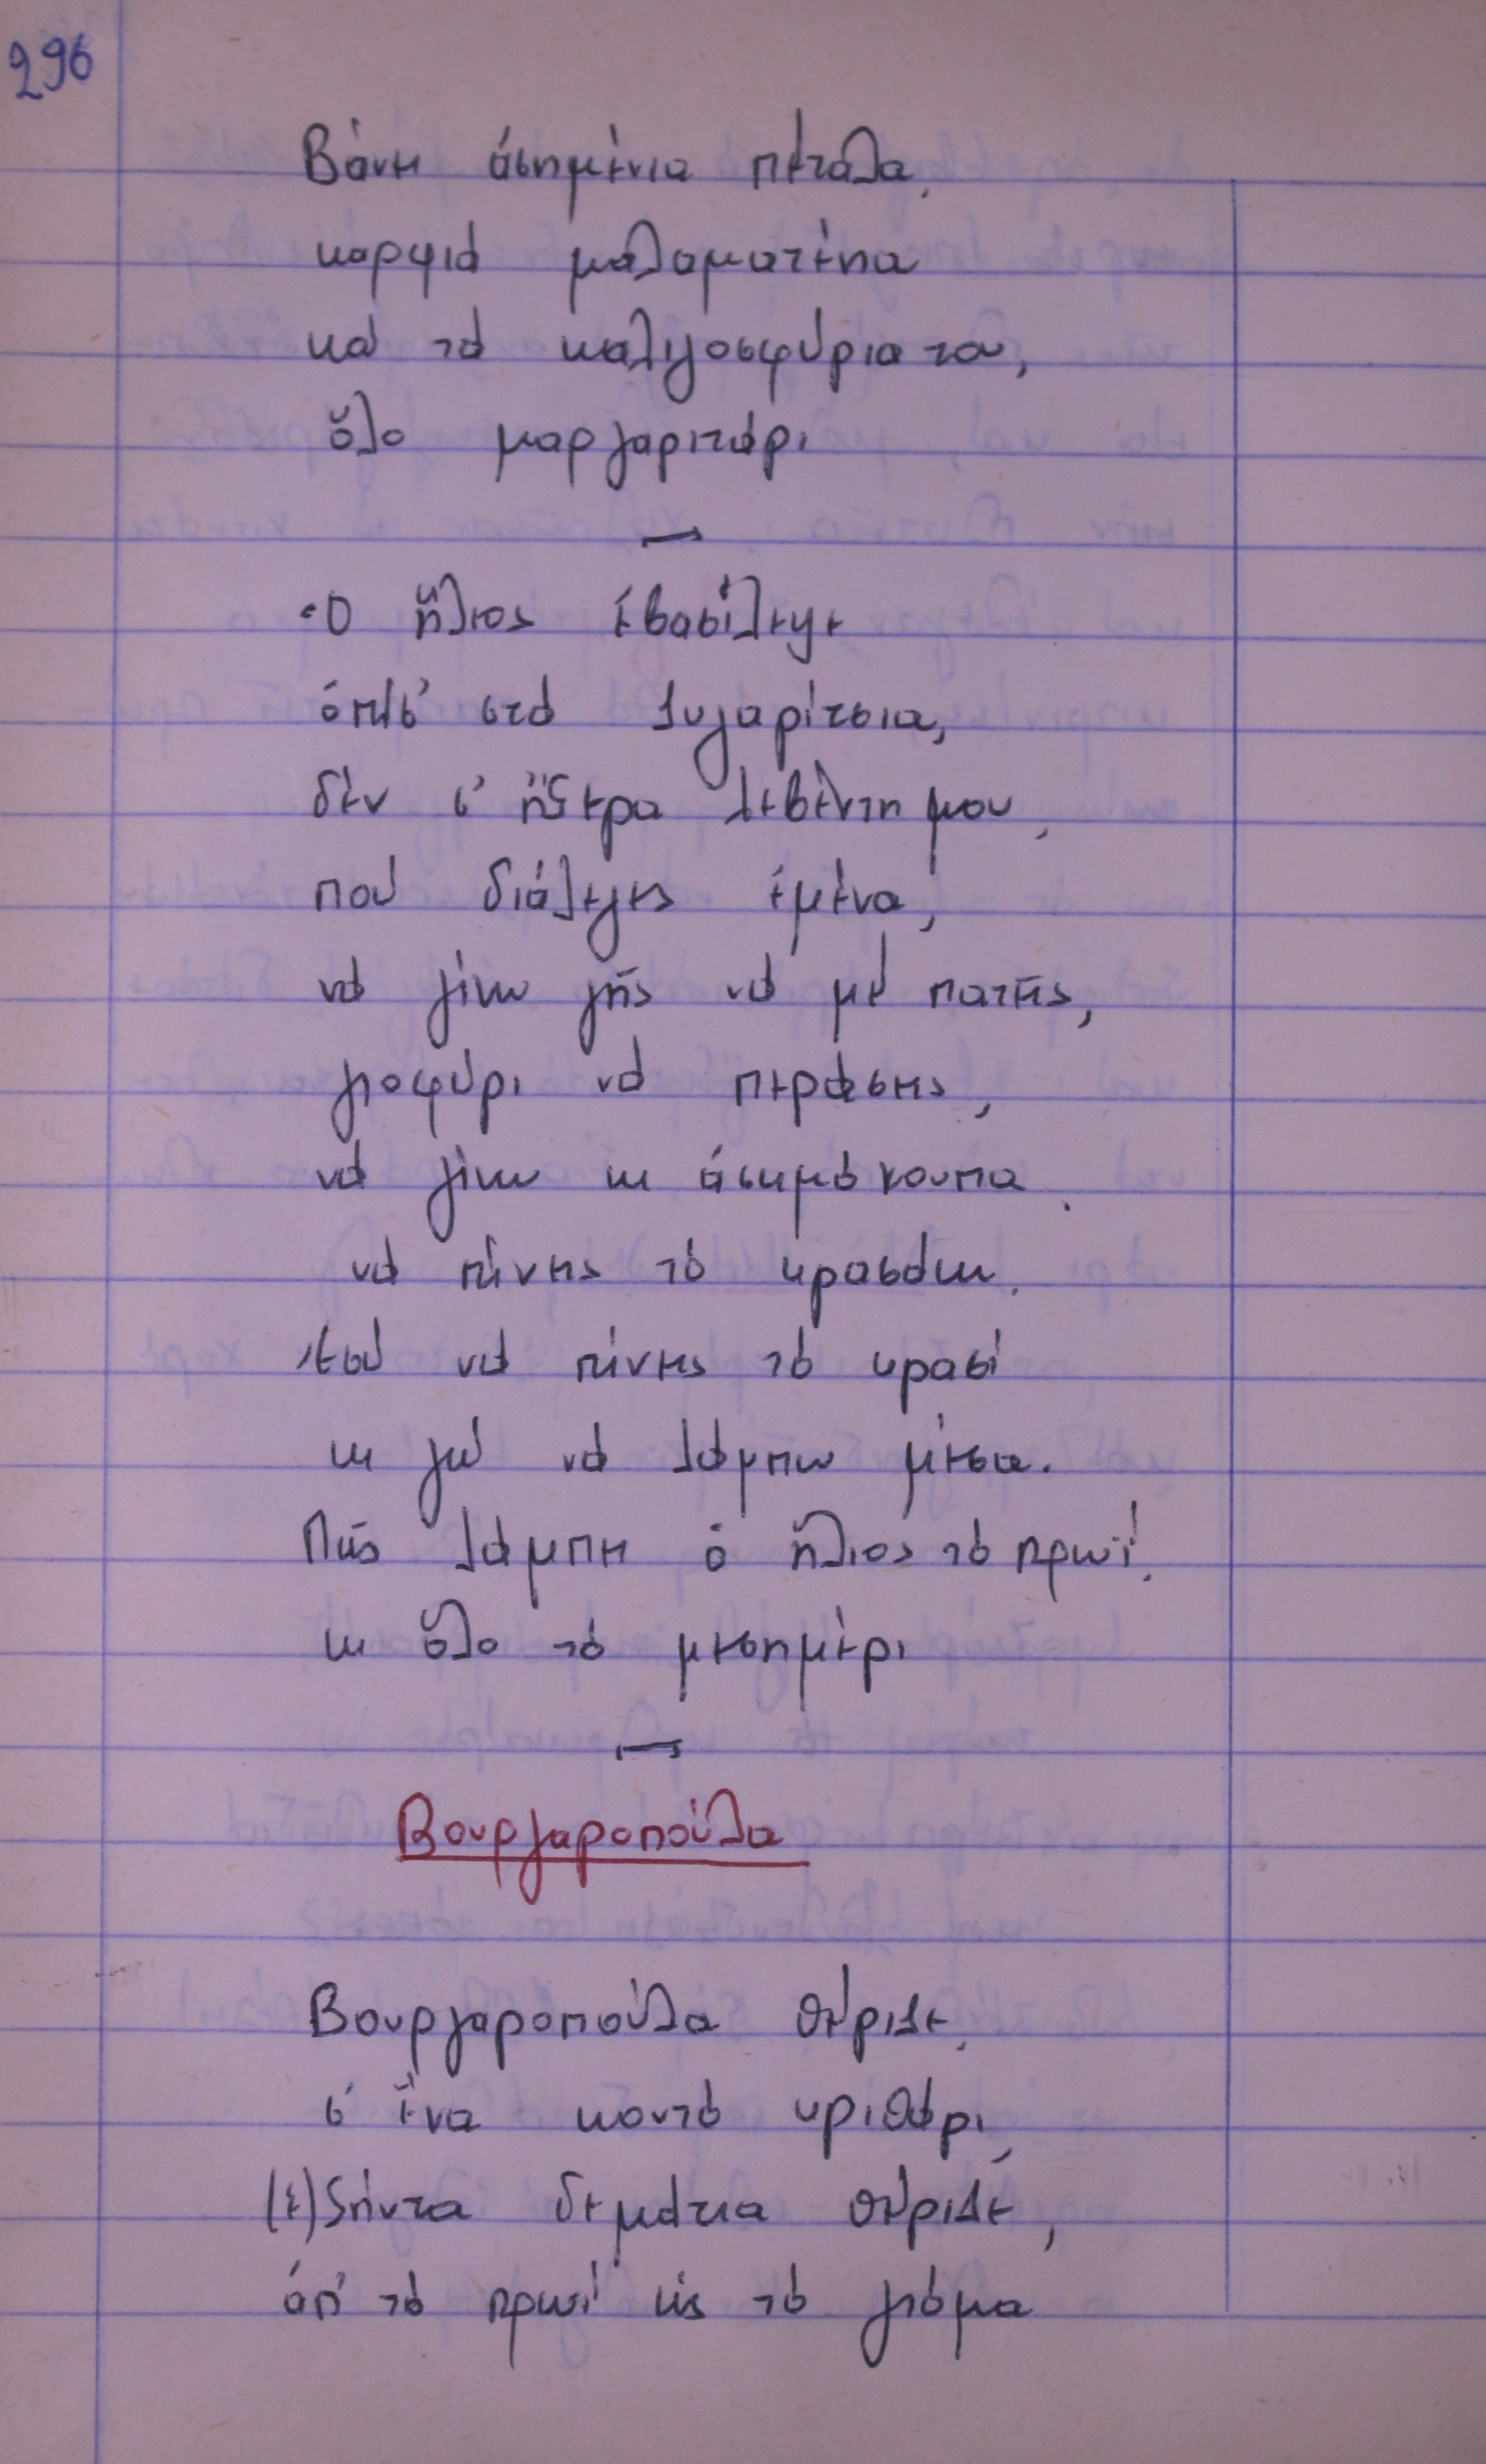 296
Βάνει ἀσημένια πέταλα,
καρφιά μαλαματένια
καί τά καλιγοσφύρια του,
ὅλο μαργαριτάρι
Ὁ ἥλιος ἐβασίλεψε
ὀπίσ' στά Λυγαρίτσια,
δέν σ' ἤξερα λεβέντη μου,
πού διάλεγες ἐμένα,
νά γίνω γῆς νά μέ πατεῖς,
γιοφύρι νά περάσεις,
νά γίνω κι ἀσημόκουπα,
νά πίνεις τό κρασάκι.
Ἐσύ νά πίνεις τό κρασί
κι γώ νά λάμπω μέσα.
Πώς λάμπει ὁ ἥλιος τό πρωΐ,
κι ὅλο τό μεσημέρι
Βουργαροπούλα
Βουργαροπούλα θέριζε,
σ' ἕνα κοντό κριθάρι,
(ἑ)ξήντα δεμάτια θέριζε,
ἀπ' τό πρωΐ εἰς τό γιόμα